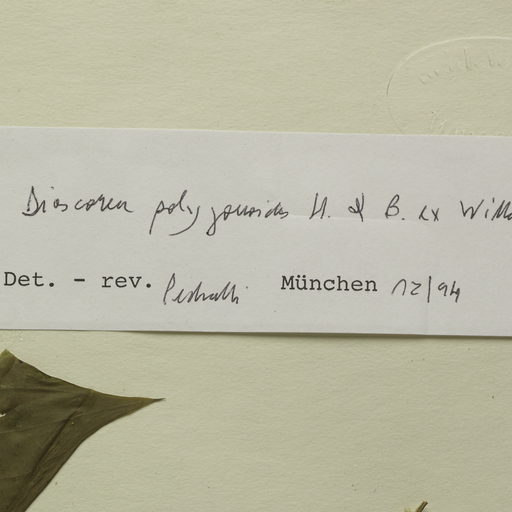 Dioscorea polygonoides H. & B. ex Willd
Det. - rev. Pedralli München 12/94